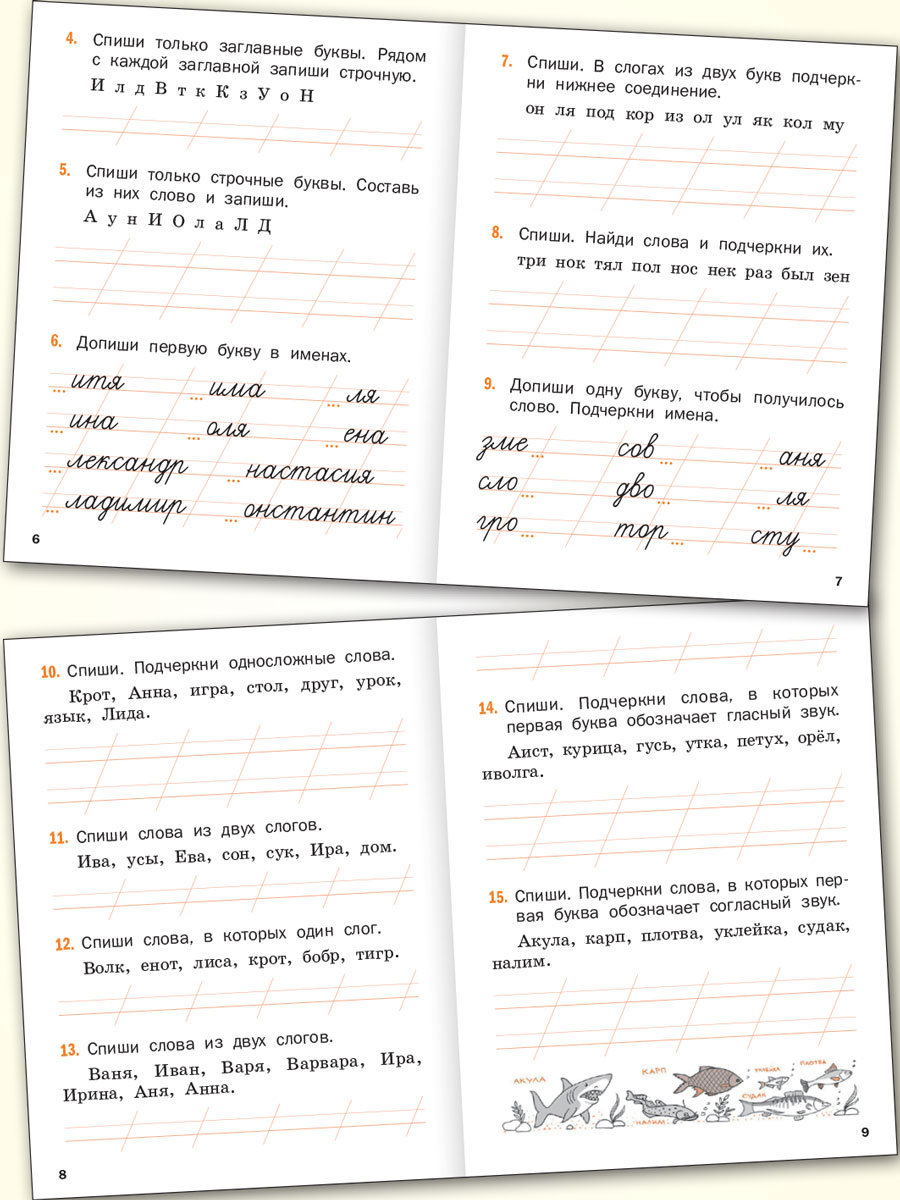 4. Спиши только заглавные буквы. Рядом
с каждой заглавной запиши строчную.
И л д В т к К з У о Н
5. Спиши только строчные буквы. Составь
из них слово и запиши.
А у н И О л а Л Д
6. Допиши первую букву в именах.
...итя ...има ...ля
...ина ...оля ...ена
...лександр ...настасия
...ладимир ...онстантин
6
7. Спиши. В слогах из двух букв подчерк-
ни нижнее соединение.
он ля под кор из ол ул як кол му
8. Спиши. Найди слова и подчеркни их.
три нок тял пол нос нек раз был зен
9. Допиши одну букву, чтобы получилось
слово. Подчеркни имена.
зме... сов... ...аня
сло... дво... ...ля
гро... тор... сту...
7
10. Спиши. Подчеркни односложные слова.
Крот, Анна, игра, стол, друг, урок,
язык, Лида.
11. Спиши слова из двух слогов.
Ива, усы, Ева, сон, сук, Ира, дом.
12. Спиши слова, в которых один слог.
Волк, енот, лиса, крот, бобр, тигр.
13. Спиши слова из двух слогов.
Ваня, Иван, Варя, Варвара, Ира,
Ирина, Аня, Анна.
8
14. Спиши. Подчеркни слова, в которых
первая буква обозначает гласный звук.
Аист, курица, гусь, утка, петух, орёл,
иволга.
15. Спиши. Подчеркни слова, в которых пер-
вая буква обозначает согласный звук.
Акула, карп, плотва, уклейка, судак,
налим.
АКУЛА
КАРП
НАЛИМ
УКЛЕЙКА
ПЛОТВА
СУДАК
9